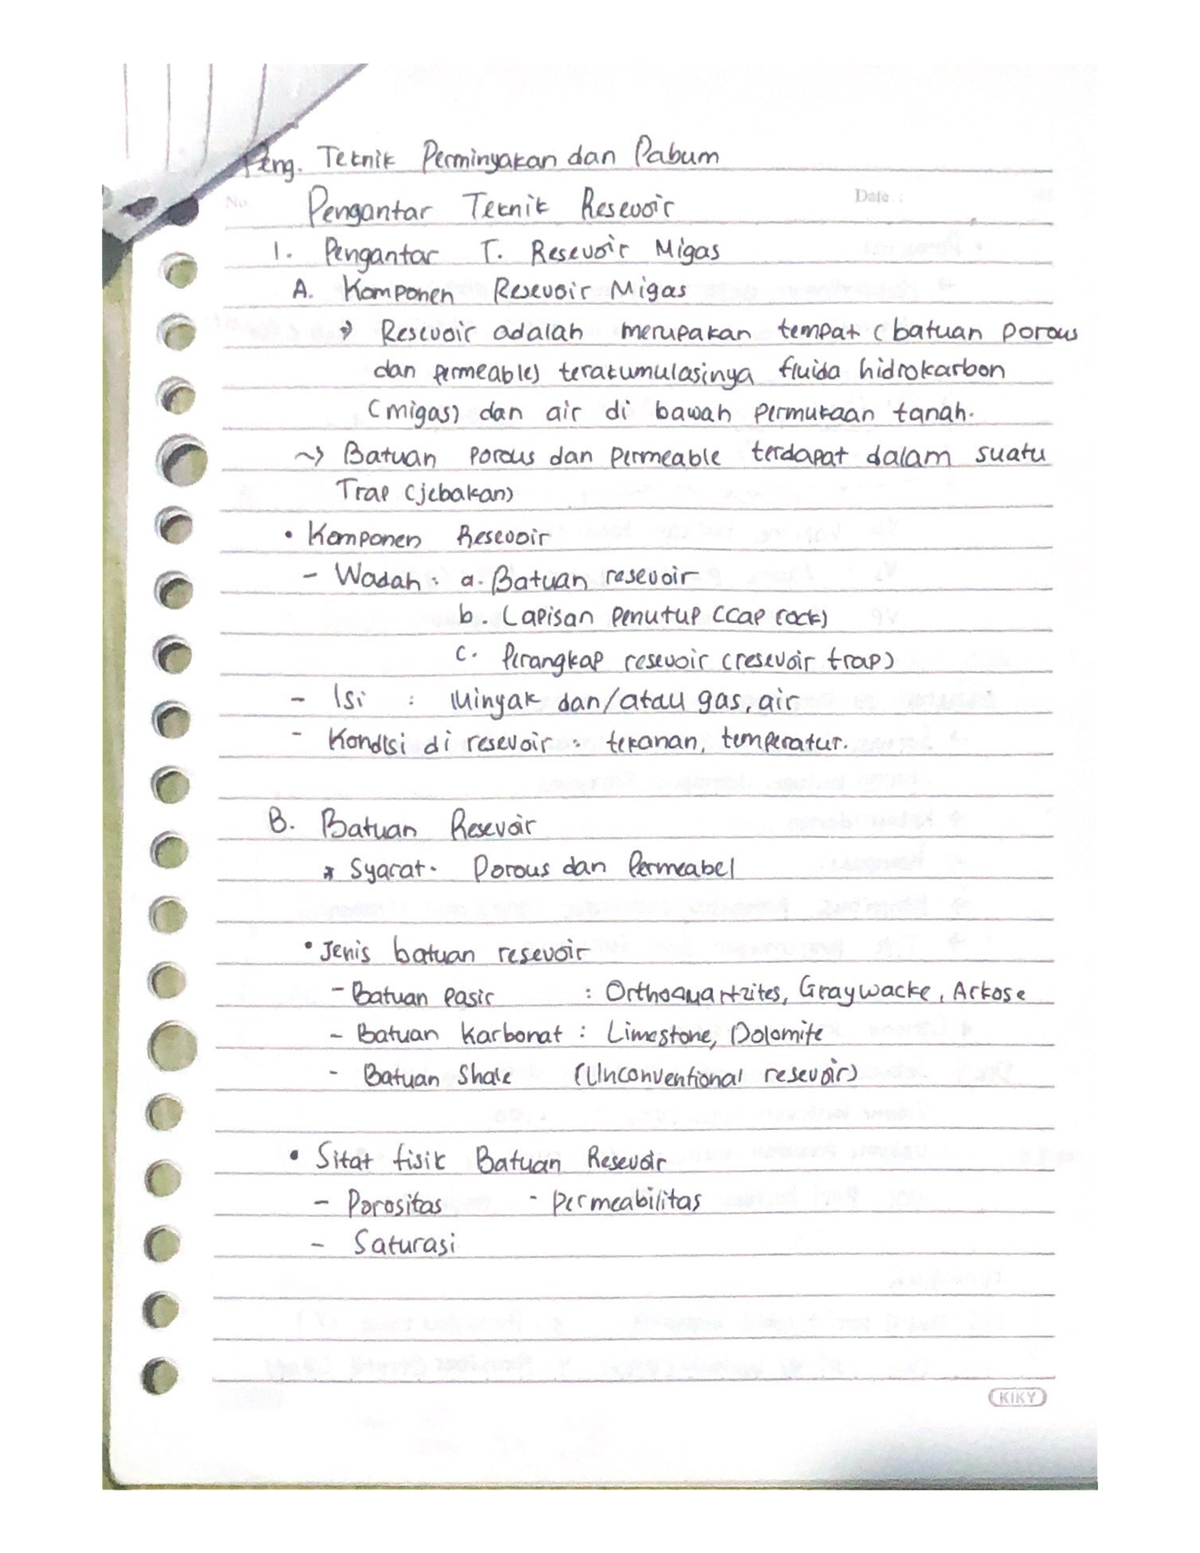 Peng. Teknik Perminyakan dan Pabum
No.
Date :
Pengantar Teknik Resevoir
1. Pengantar T. Resevoir Migas
A. Komponen Resevoir Migas
→ Resevoir adalah merupakan tempat (batuan porous
dan permeable) terakumulasinya fluida hidrokarbon
(migas) dan air di bawah permukaan tanah.
~> Batuan porous dan permeable terdapat dalam suatu
Trap (jebakan)
• Komponen Resevoir
- Wadah : a. Batuan resevoir
b. Lapisan penutup (cap rock)
c. Perangkap resevoir (resevoir trap)
- Isi : Minyak dan/atau gas, air
- Kondisi di resevoir : tekanan, temperatur.
B. Batuan Resevoir
* Syarat - Porous dan Permeabel
• Jenis batuan resevoir
- Batuan pasir : Orthoquartzites, Graywacke, Arkose
- Batuan Karbonat : Limestone, Dolomite
- Batuan Shale (Unconventional resevoir)
• Sifat fisik Batuan Resevoir
- Porositas - Permeabilitas
- Saturasi
KIKY